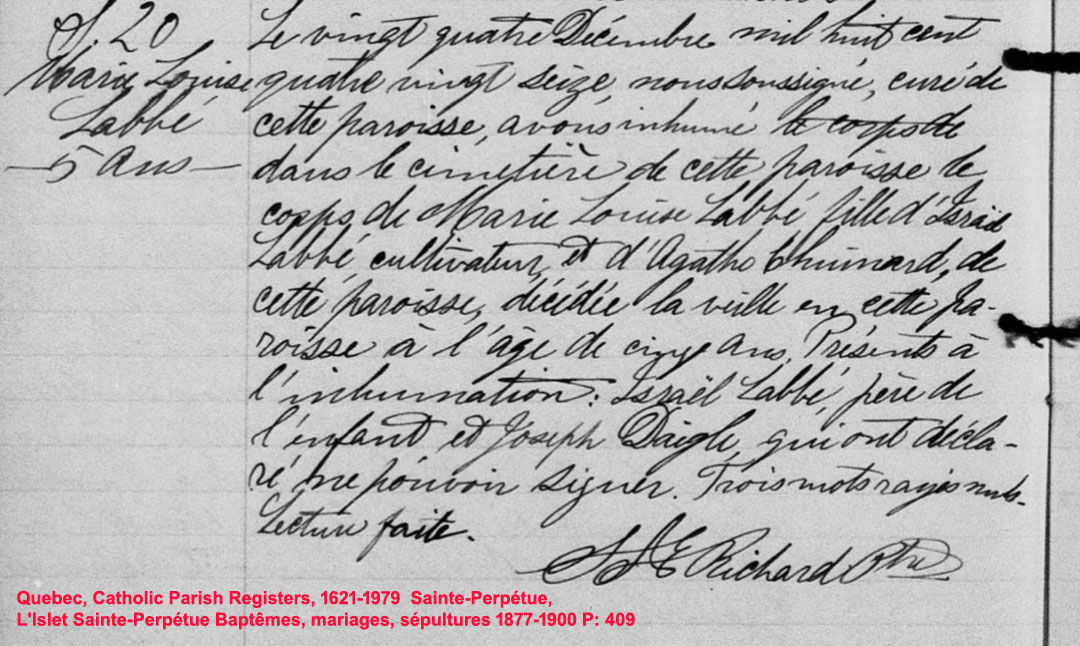 S. 20
Marie Louise
Labbé
— 5 Ans —
Le vingt quatre Décembre mil huit cent
quatre vingt seize, nous soussigné, curé de
cette paroisse, avons inhumé le corps de
dans le cimetière de cette paroisse le
corps de Marie Louise Labbé fille d'Israël
Labbé, cultivateur, et d'Agathe Chuinard, de
cette paroisse, décédée la veille en cette pa-
roisse à l'âge de cinq ans. Présents à
l'inhumation: Israël Labbé, père de
l'enfant et Joseph Daigle, qui ont décla-
ré ne pouvoir signer. Trois mots rayés nuls.
Lecture faite.
Richard Ptre
Quebec, Catholic Parish Registers, 1621-1979 Sainte-Perpétue,
L'Islet Sainte-Perpétue Baptêmes, mariages, sépultures 1877-1900 P: 409